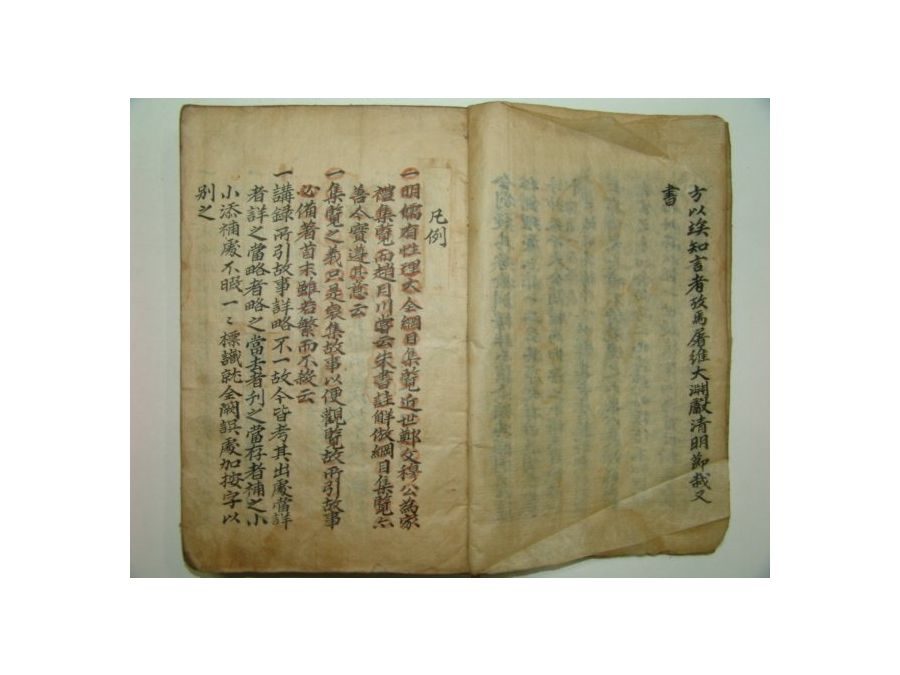 方以竢知言者攷焉屠維大淵獻清明節哉又
書
凡例
一明儒有性理大全綱目集覽近世鄭文穆公為家
禮集覽而趙月川嘗云朱書註解倣綱目集覽亦
善今實遵其意云
一集覽之義只是裒集故事以便觀覽故所引故事
必備著首末雖若繁而不殺云
一講録所引故事詳略不一故今皆考其出處當詳
者詳之當略者略之當去者刋之當存者補之小
小添補處不暇一〻標識就全闕誤處加按字以
別之